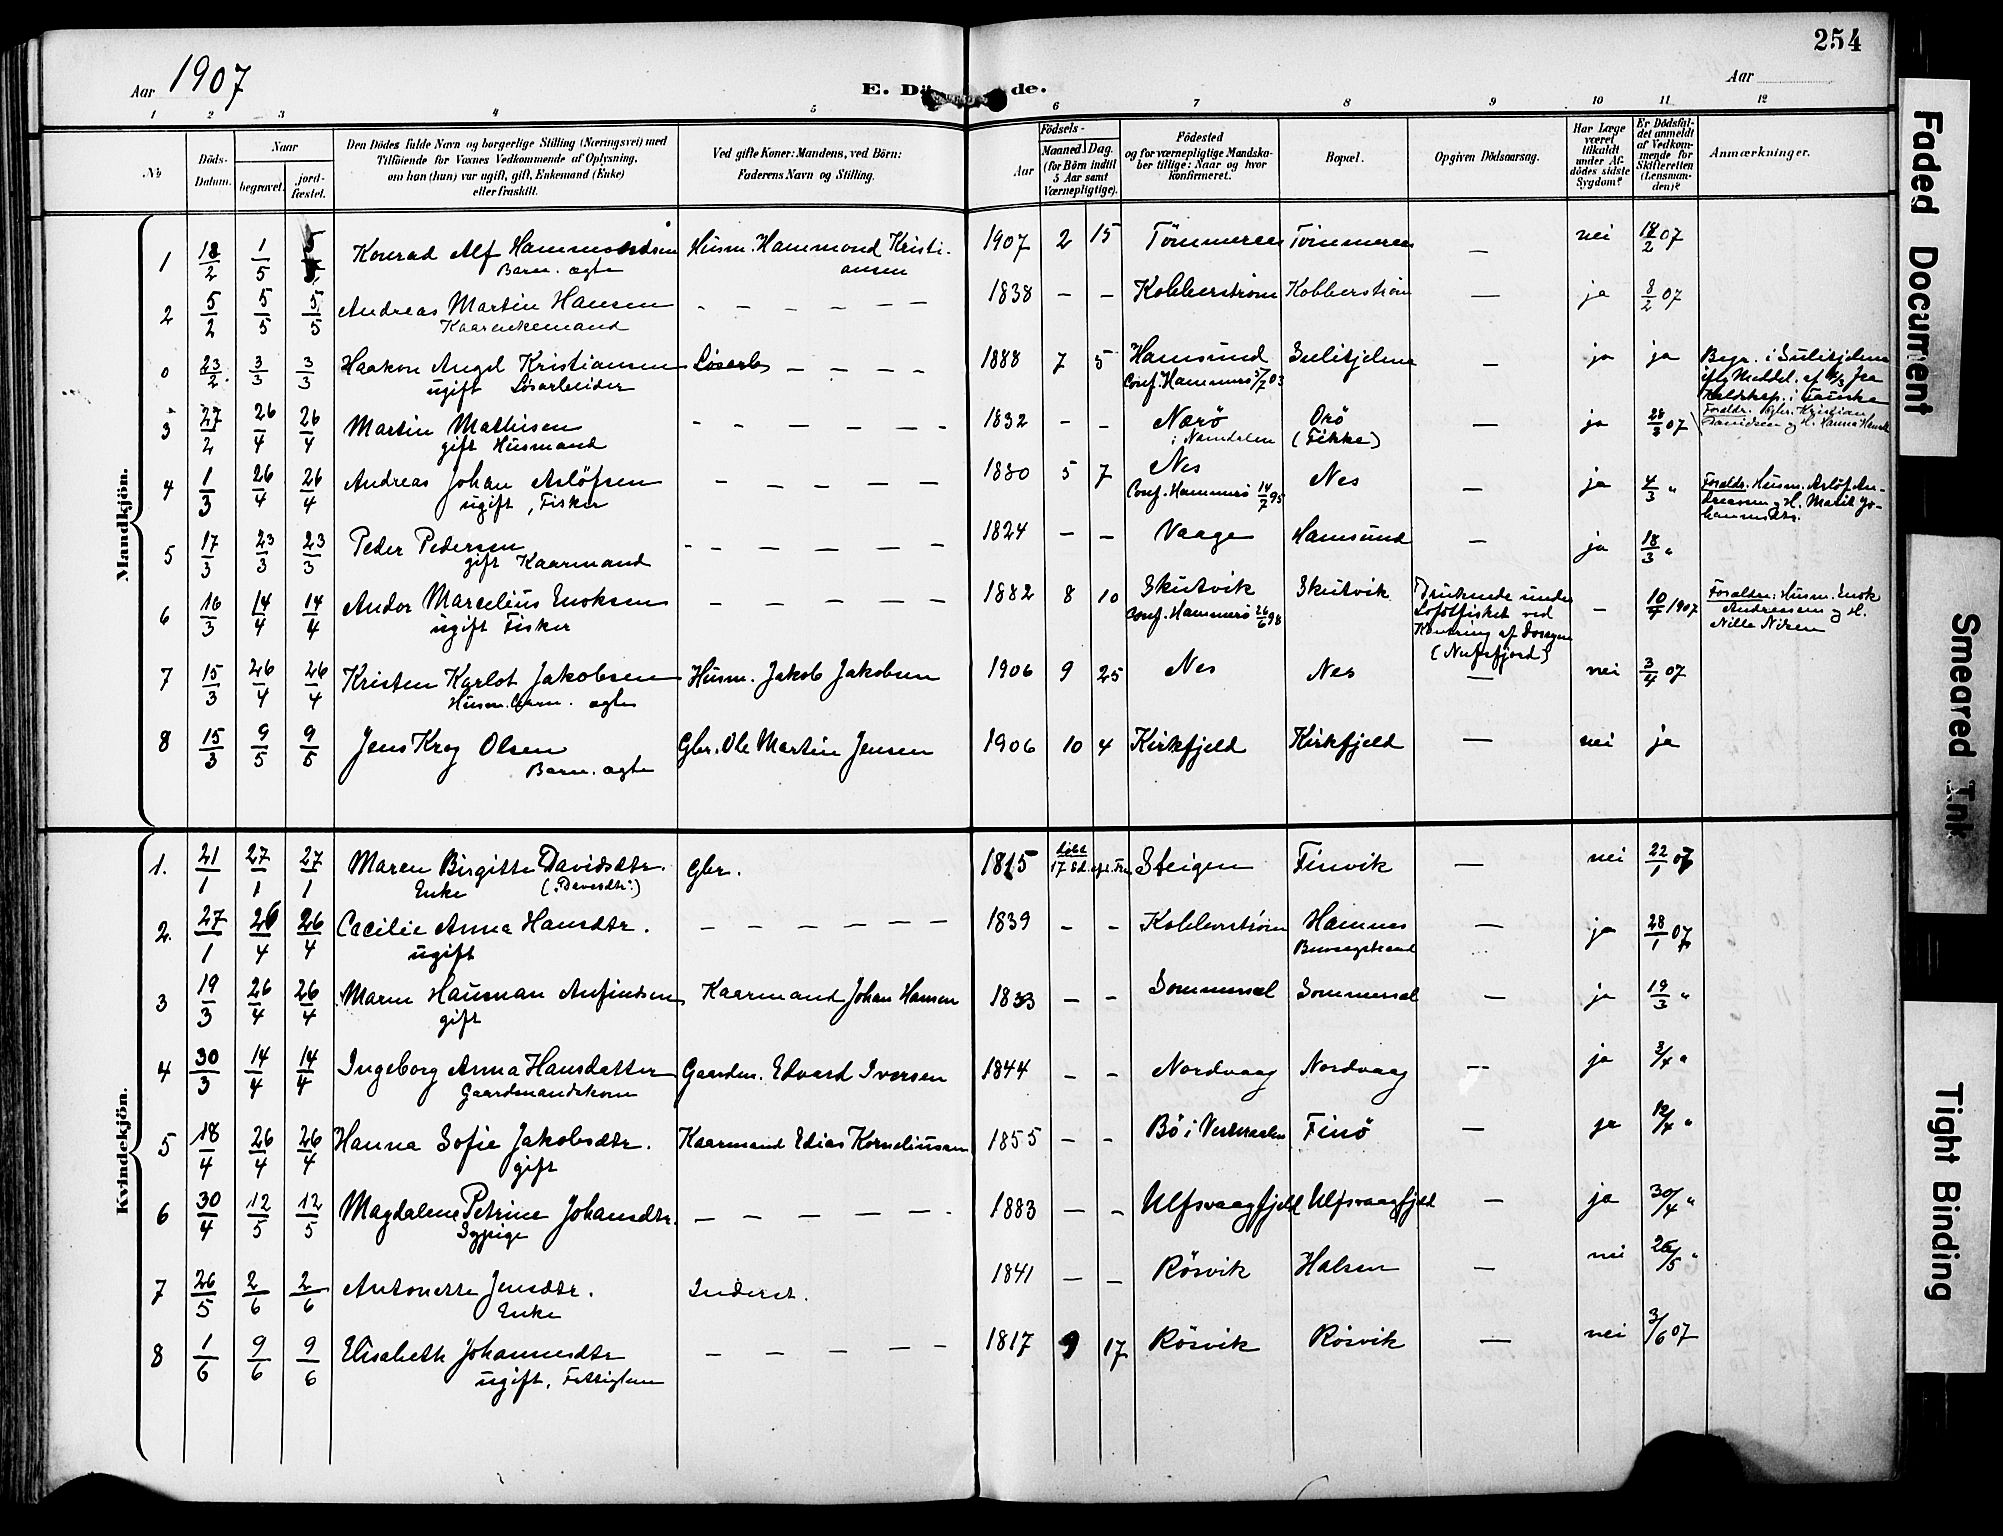 254
Aar 1907
E. Dö de.
Aar
1 2 3 4 5 6 7 8 9 10 11 12
No
Döds-
Datum.
Naar
begravet.
jord-
fæstet.
Den Dödes fulde Navn og borgerlige Stilling (Næringsvei) med
Tilföiende for Voxnes Vedkommende af Oplysning,
om han (hun) var ugift, gift, Enkemand (Enke)
eller fraskilt.
Ved gifte Koner: Mandens, ved Börn:
Faderens Navn og Stilling.
Födsels-
Aar
Maaned Dag.
(for Börn indtil
5 Aar samt
Værnepligtige).
Födested
og for værnepligtige Mandska-
ber tillige: Naar og hvor
konfirmeret.
Bopæl.
Opgiven Dödsaarsag.
Har Læge
været
tilkaldt
under Af-
dödes sidste
Sygdom?
Er Dödsfal-
det anmeldt
af Vedkom-
mende for
Skifteretten
(Lensman-
den)?
Anmærkninger.
Mandkjön.
1 18/2 1/5 Konrad Alf Hammondsen Husm. Hammond Kristi- 1907 2 15 Tömmernes Tömmernes — nei 18/2 07
Barn. ægte ansen
2 5/2 5/5 5/5 Andreas Martin Hansen – – – – – 1838 – – Kobberstrøm Kobberstrøm — ja 8/2 07
Kaarenkemand
0 23/2. 3/3 3/3 Haakon Angel Kristiansen Løsarb – – – – 1888 7 5 Hamsund Sulitjelma – ja ja Begr. i Sulitjelma
ugift Løsarbeider Conf. Hammerö 5/7 03
iflg Meddel. af 4/3 fra
Kaldskap. i Fauske
Foraldr. Gbr. Kristian
Danielsen og H. Hanna Hansd
3 27/2 26/4 26/4 Martin Mathisen – – – – – – 1832 – – Nærö Orö — ja 28/3 07
gift Husmand i Namdalen (Fikke)
4 1/3 26/4 26/4 Andreas Johan Aslöfsen – – – – – 1880 5 7 Nes Nes — ja 4/3 " Foraldr. Husm. Aslöf An-
ugift, Fisker Conf. Hammerö 14/7 95
dreasen og H. Marit Jo-
hannesdtr.
5 17/3 23/3 23/3 Peder Pedersen – – – – – – 1824 – – Vaage Hamsund – ja 18/3 "
gift Kaarmand
6 16/3 14/4 14/4 Andor Marcelius Enoksen – – – – – 1882 8 10 Skutvik Skutvik Druknede under – 10/4 1907 Foraldre: Husm. Enok
ugift Fisker Conf. Hammerö 26/6 98 Lofotfisket ved Andreasen og H.
Kantring af Dorygen Nille Nilsen
(Nufsfjord)
7 15/3 26/4 26/4 Kristen Karlot Jakobsen Husm. Jakob Jakobsen 1906 9 25 Nes Nes — nei 3/4 07
Husm. barn. ægte
8 15/3 9/5 9/5 Jens Krog Olsen Gbr. Ole Martin Jensen 1906 10 4 Kirkfjeld Kirkfjeld — nei ja
Barn. ægte
Kvindekjön.
1. 21/1 27/1 27/1 Maren Birgitte Davidsdtr. Gbr. 1815 døbt Steigen Finvik — nei 22/1 07
Enke (: Davesdtr:) 17 Sd. eft. Tr.
2. 27/1 26/4 26/4 Cæcilie Anna Hansdtr. – – – – – 1839 – – Kobberstrøm Hamnes — ja 28/1 07
ugift
3 19/3 26/4 26/4 Maren Hausman Anfindsen Kaarmand Johan Hansen 1833 – – Sommersel Sommersel – ja 19/3 "
gift
4 30/3 14/4 14/4 Ingeborg Anna Hansdatter Gaardm. Edvard Iversen 1844 – – Nordvaag Nordvaag — ja 3/4 "
Gaardmandskone
5 18/4 26/4 26/4 Hanna Sofie Jakobsdtr. Kaarmand Edias Korneliussen 1855 – – Bö i Vesteraalen Finö – ja 12/4 "
gift
6 30/4 12/5 12/5 Magdalene Petrine Johansdtr. – – – – – 1883 – – Ulfsvaagfjeld Ulfsvaagfjeld – ja 30/4 "
Sypige
7 26/5 2/6 2/6 Antonette Jensdtr. Inderst. 1841 – – Rösvik Halsen – nei 26/5 "
Enke
8 1/6 9/6 9/6 Elisabeth Johannesdtr – – – – – 1817 9 17 Rösvik Rösvik — nei 3/6 07
ugift, Fattiglem
Faded Document
Smeared Ink
Tight Binding